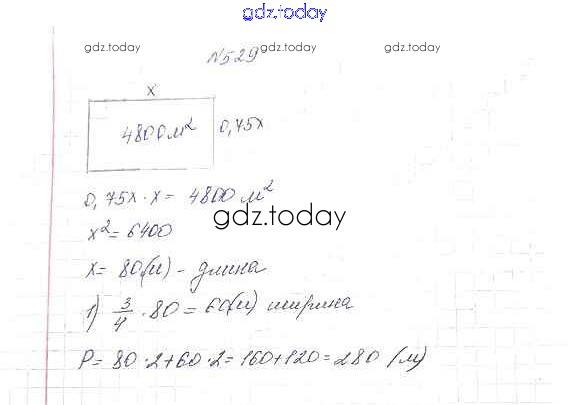 gdz.today
gdz.today gdz.today gdz.today
№529
x
4800 м² 0,75x
0,75x · x = 4800 м²
x² = 6400
gdz.today
x = 80(м) - длина
1) 3/4 · 80 = 60(м) ширина
P = 80 · 2 + 60 · 2 = 160 + 120 = 280 (м)